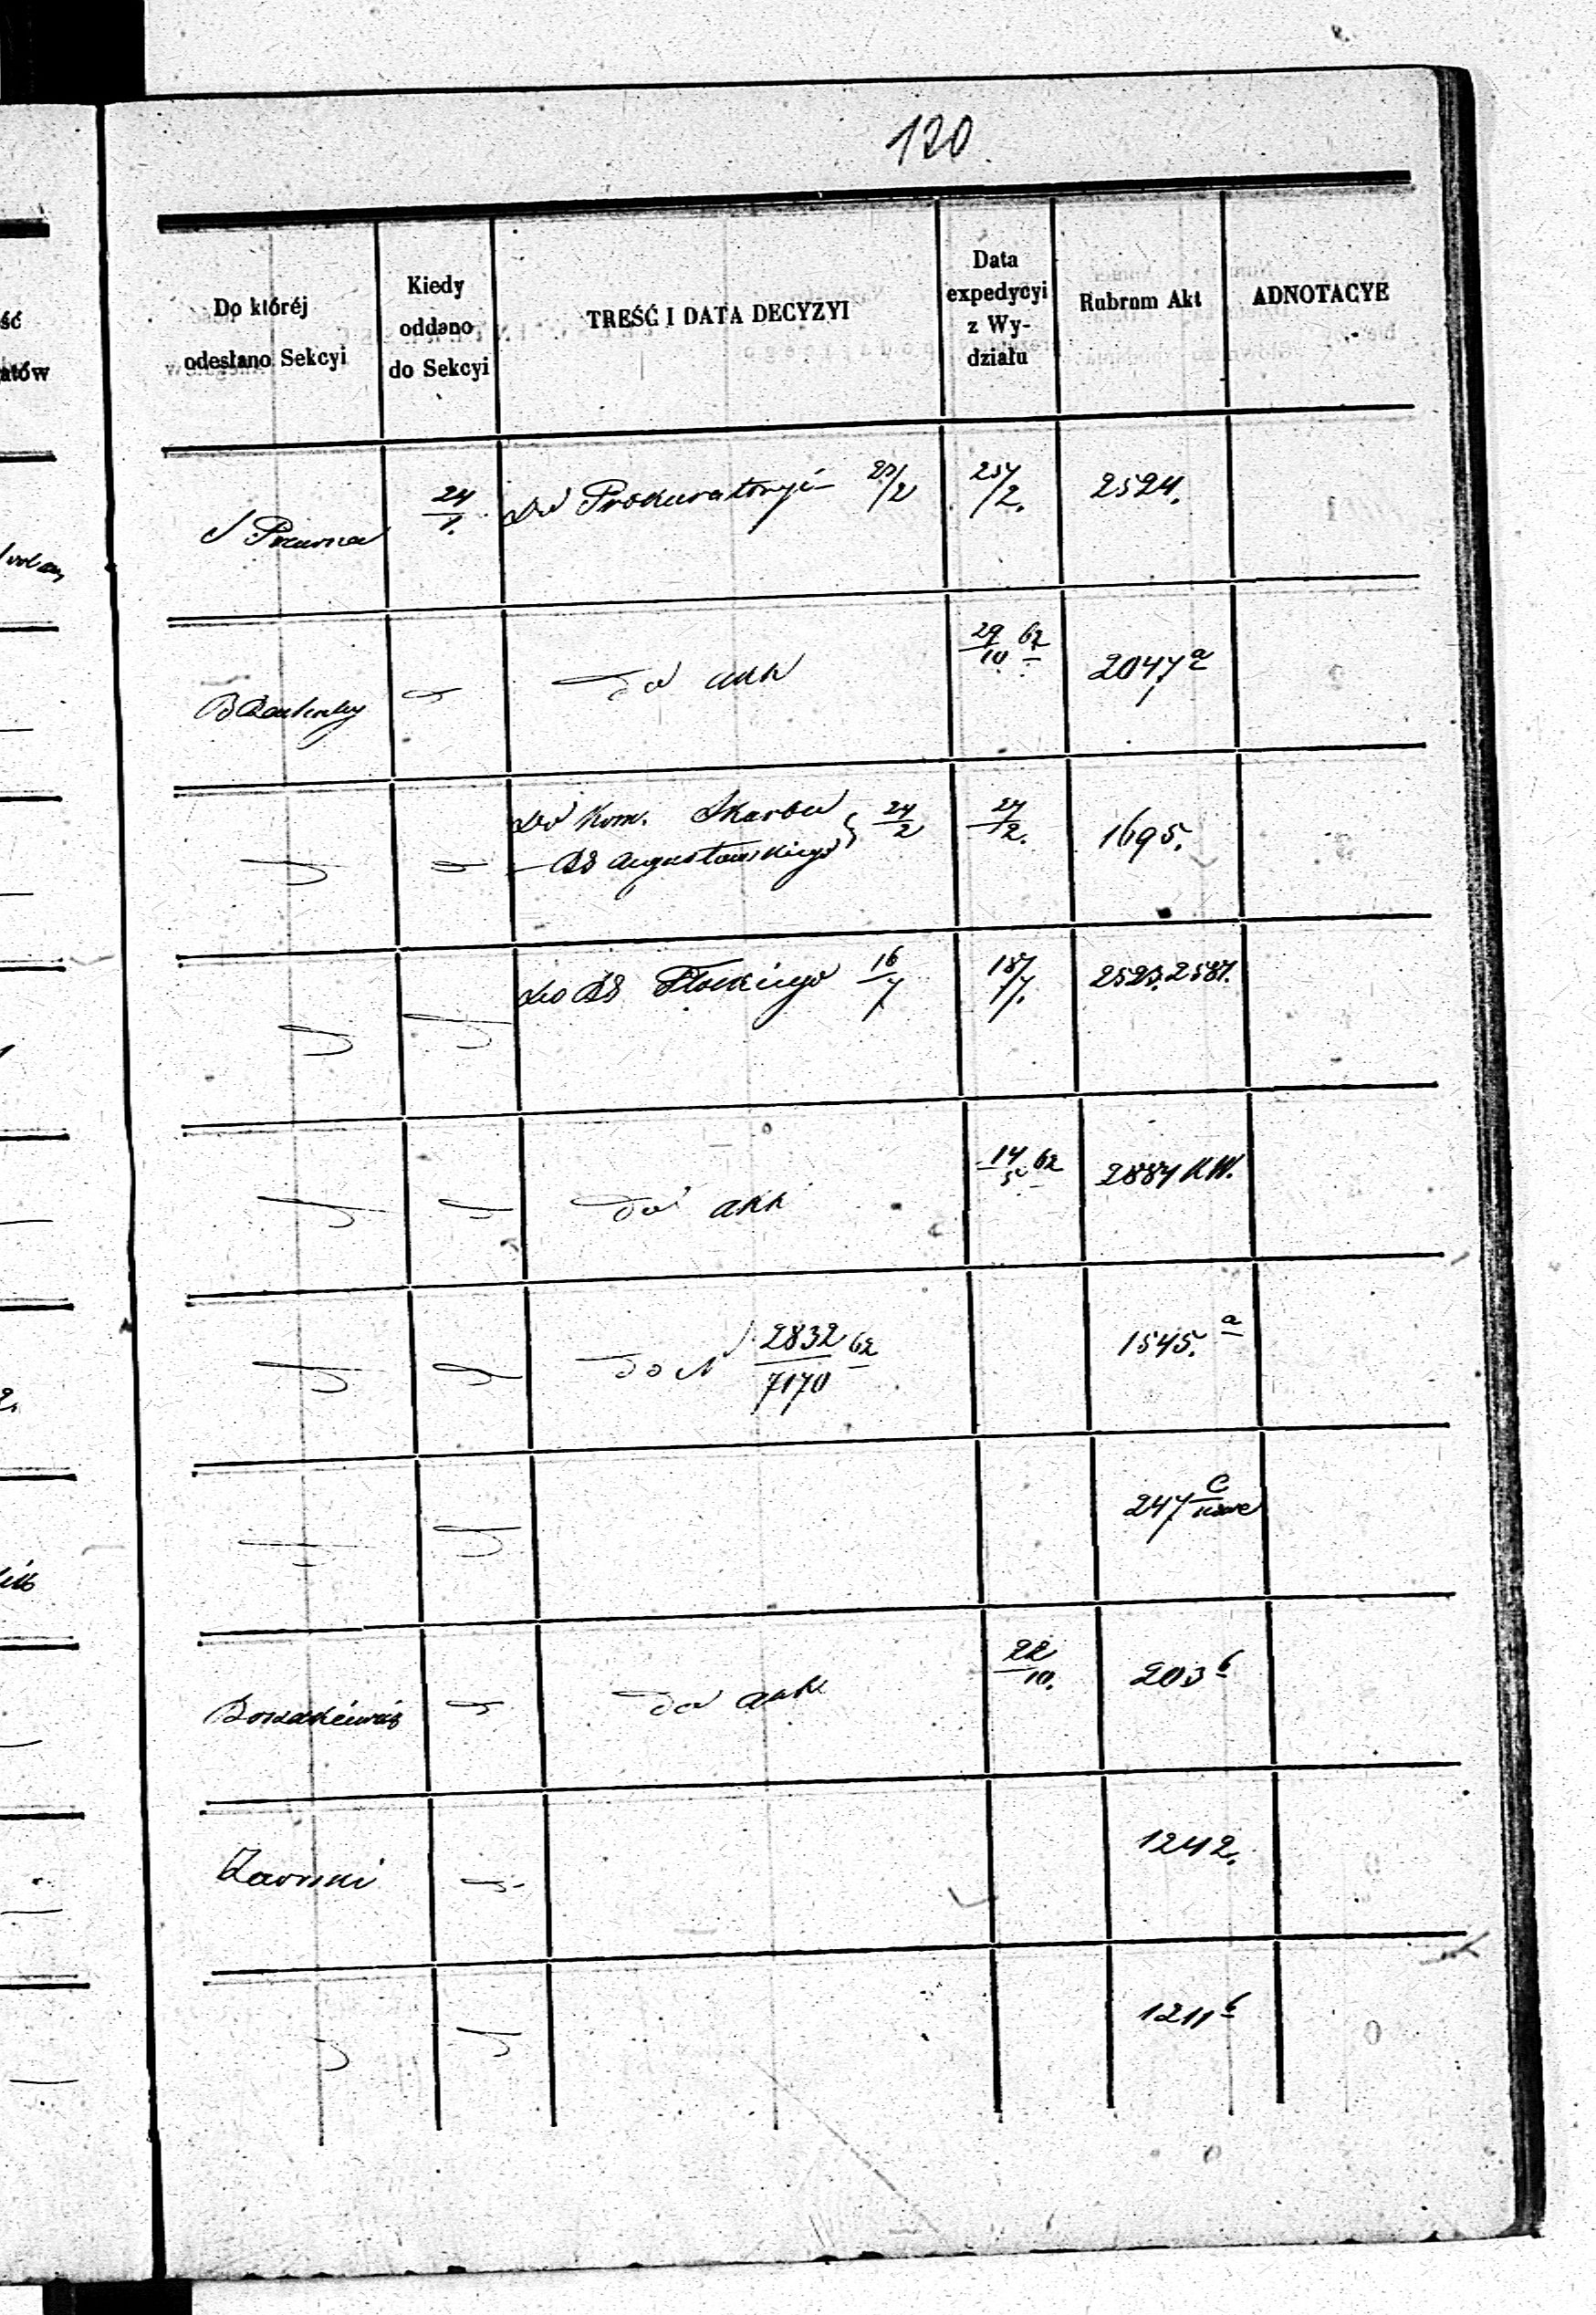 120
Do któréj
odesłano Sekcyi
Kiedy
oddano
do Sekcyi
TREŚĆ I DATA DECYZYI
Data
expedycyi
z Wy-
działu
Rubrum Akt
ADNOTACYE
S Prawna 24/1. Do Prokuratoryi 23/2 25/2. 2524.
do akt 29/10 62 2047 a
Do Kom. Skarbu 24/2 27/2. 1695.
Augustowskiego
Do Płockiego 16/7 18/7. 2523. 2587.
do akt 14/5 62 2887 KW.
do N 2832/7170 62 1545. a
247 C
do akt 22/10. 203 b
1242.
1211 b